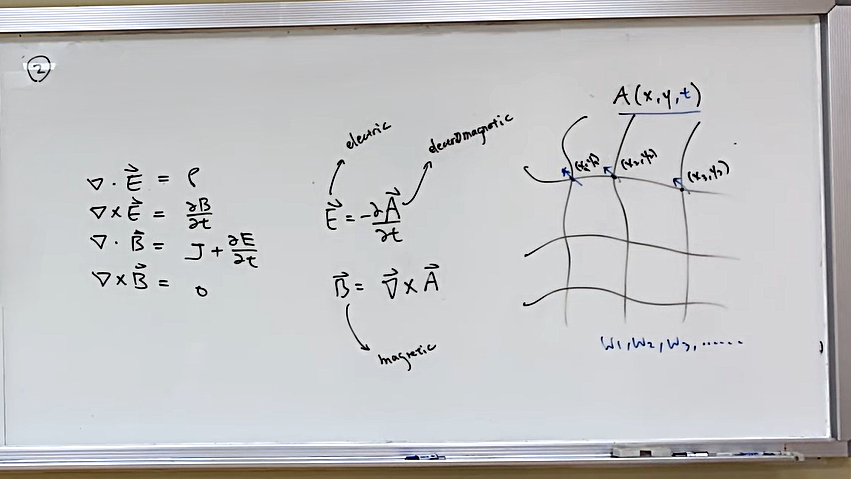 2
∇ · E⃗ = ρ
∇ × E⃗ = ∂B/∂t
∇ · B⃗ = J + ∂E/∂t
∇ × B⃗ = 0
electric
electromagnetic
E⃗ = -∂A⃗/∂t
B⃗ = ∇⃗ × A⃗
magnetic
A(x,y,t)
(x₁,y₁) (x₂,y₂) (x₃,y₃)
w₁, w₂, w₃, ......